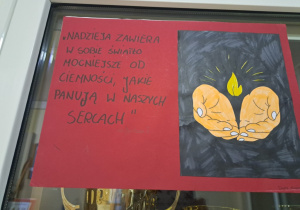 „NADZIEJA ZAWIERA
W SOBIE ŚWIATŁO
MOCNIEJSZE OD
CIEMNOŚCI, JAKIE
PANUJĄ W NASZYCH
SERCACH"